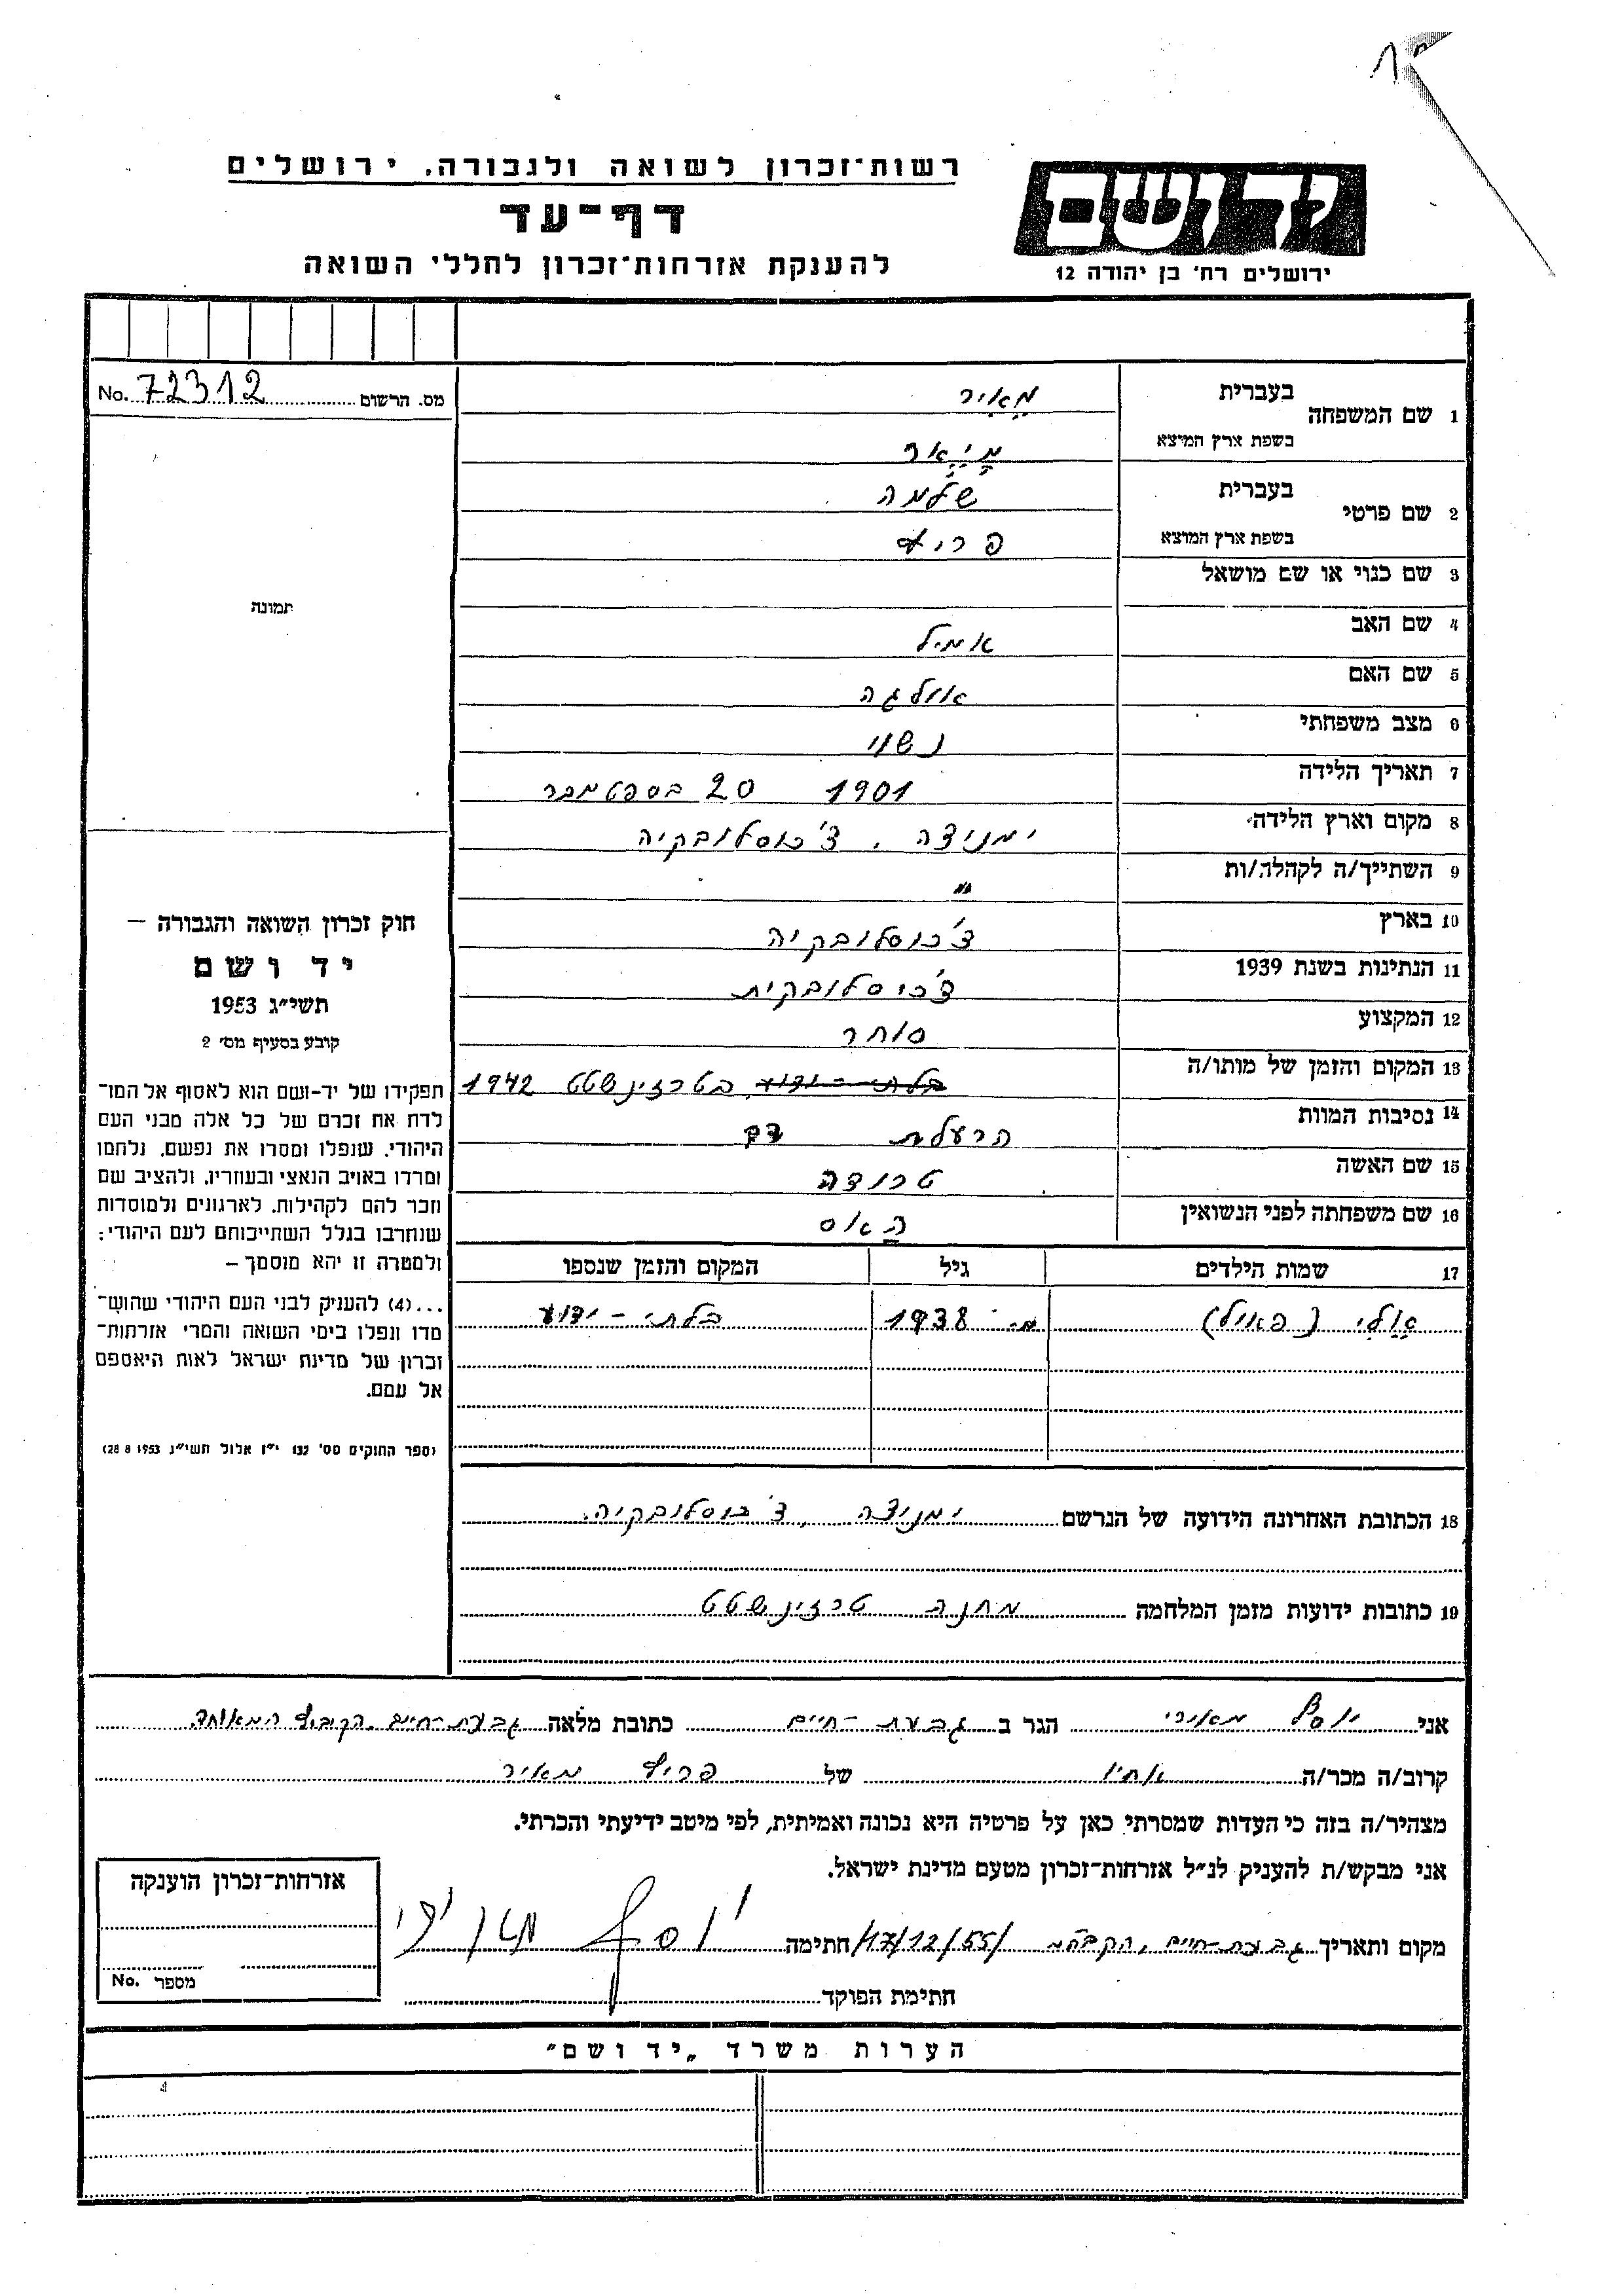 רשות־זכרון לשואה ולגבורה, ירושלים
דף־עד
להענקת אזרחות־זכרון לחללי השואה
יד ושם
ירושלים רח' בן יהודה 12
מס. הרשום 72312 No.
1 שם המשפחה
בעברית מֵאִיר
בשפת ארץ המוצא מַיְיאֶר
2 שם פרטי
בעברית שלמה
בשפת ארץ המוצא פריץ
3 שם כנוי או שם מושאל
4 שם האב אמיל
5 שם האם אולגה
6 מצב משפחתי נשוי
7 תאריך הלידה 1901 20 בספטמבר
8 מקום וארץ הלידה ימניצה, צ'כוסלובקיה
9 השתייך/ה לקהלה/ות "
10 בארץ צ'כוסלובקיה
11 הנתינות בשנת 1939 צ'כוסלובקית
12 המקצוע סוחר
13 המקום והזמן של מותו/ה בלתי-ידוע בטרזינשטט 1942
14 נסיבות המוות הרעלת דם
15 שם האשה טרודה
16 שם משפחתה לפני הנשואין האס
17 שמות הילדים גיל המקום והזמן שנספו
(פאויל) מ. 1938 בלתי-ידוע
18 הכתובת האחרונה הידועה של הנרשם ימניצה, צ'כוסלובקיה.
19 כתובות ידועות מזמן המלחמה מחנה טרזינשטט
תמונה
חוק זכרון השואה והגבורה –
יד ושם
תשי"ג 1953
קובע בסעיף מס' 2
תפקידו של יד-ושם הוא לאסוף אל המו־
לדת את זכרם של כל אלה מבני העם
היהודי, שנפלו ומסרו את נפשם, נלחמו
ומרדו באויב הנאצי ובעוזריו, ולהציב שם
וזכר להם לקהילות, לארגונים ולמוסדות
שנחרבו בגלל השתייכותם לעם היהודי;
ולמטרה זו יהא מוסמך –
...(4) להעניק לבני העם היהודי שהוש־
מדו ונפלו בימי השואה והמרי אזרחות־
זכרון של מדינת ישראל לאות היאספם
אל עמם.
(ספר החוקים מס' 132 י"ז אלול תשי"ג 28 8 1953)
אני יוסף מאירי הגר ב גבעת-חיים כתובת מלאה גבעת-חיים, הקיבוץ המאוחד
קרוב/ה מכר/ה אחיו של פריץ מאיר
מצהיר/ה בזה כי העדות שמסרתי כאן על פרטיה היא נכונה ואמיתית, לפי מיטב ידיעתי והכרתי.
אני מבקש/ת להעניק לנ"ל אזרחות-זכרון מטעם מדינת ישראל.
מקום ותאריך גבעת-חיים, /17/12/55/ חתימה יוסף מאירי
חתימת הפוקד
אזרחות-זכרון הוענקה
מספר No.
הערות משרד „יד ושם"